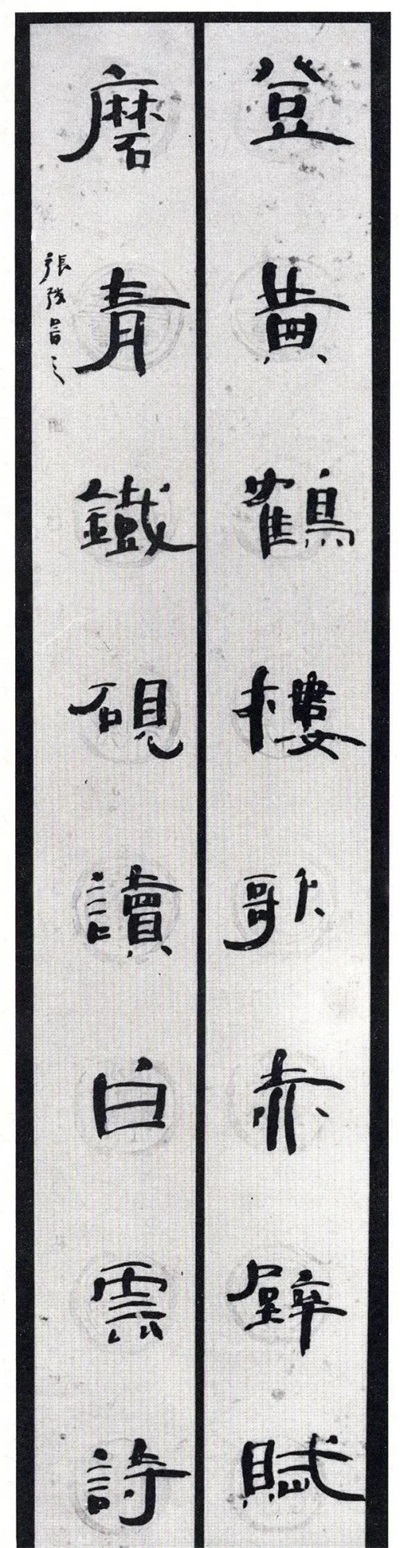 登黄鶴樓歌赤壁賦
磨青鐵硯讀白雲詩
張強書之